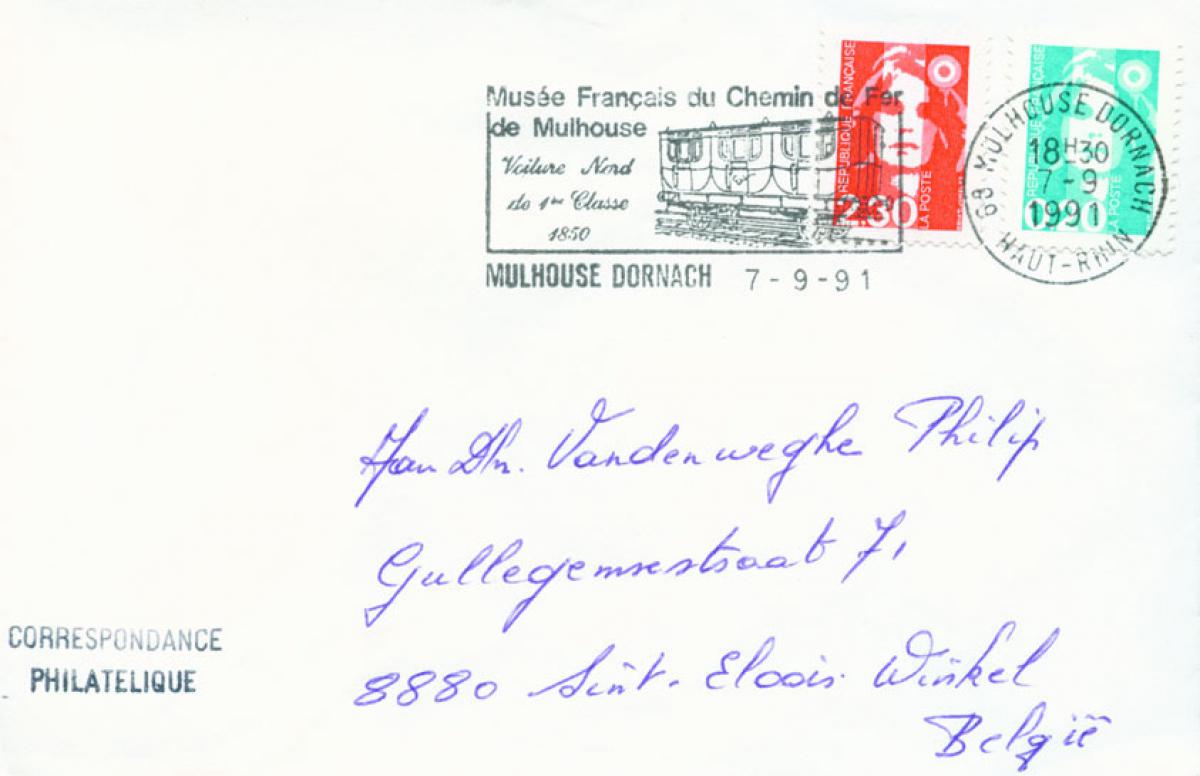 Musée Français du Chemin de Fer
de Mulhouse
Voiture Nord
de 1ère Classe
1850
MULHOUSE DORNACH 7-9-91
RÉPUBLIQUE FRANÇAISE
2.30
LA POSTE
68 MULHOUSE DORNACH
18H30
7-9
1991
HAUT-RHIN
Aan Dhr. Vandenweghe Philip
Gullegemsestraat 71
8880 Sint. Eloois. Winkel
België
CORRESPONDANCE
PHILATELIQUE